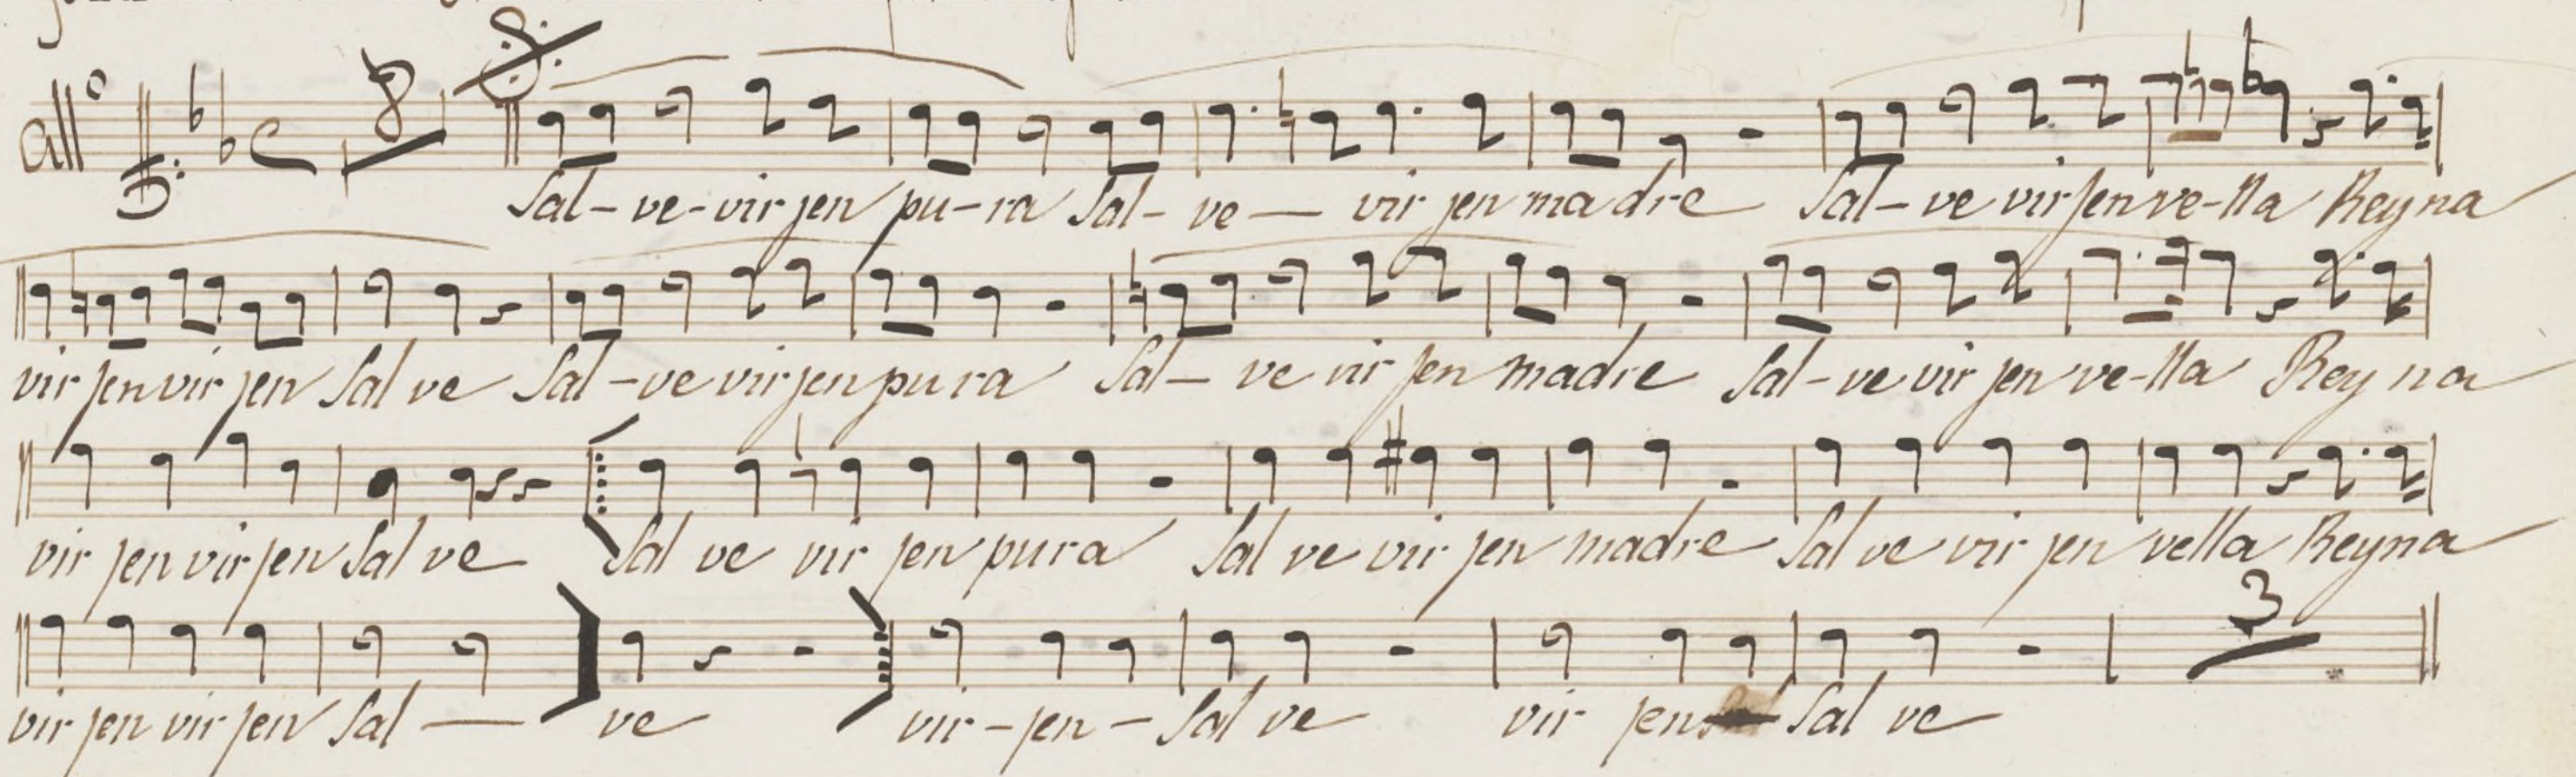 All° 8
Sal-ve-virjen pu-ra Sal-ve— vir jen madre Sal-ve virjen ve-lla Reyna
vir jen vir jen Salve Sal-ve virjen pura Sal-ve vir jen madre Sal-ve vir jen ve-lla Reyna
vir jen virjen Salve Sal ve vir jen pura Sal ve vir jen madre Sal ve vir jen vella Reyna
vir jen vir jen Sal— ve vir-jen-Sal ve vir jen Sal ve
3